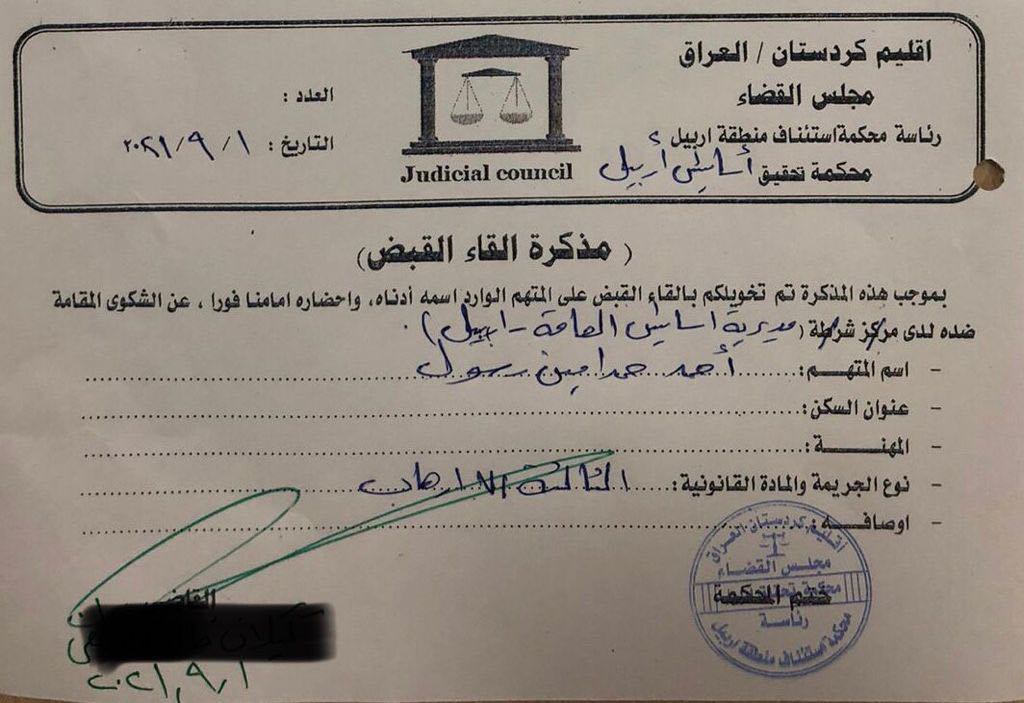 اقليم كردستان / العراق
مجلس القضاء
رئاسة محكمة استئناف منطقة اربيل
محكمة تحقيق أسايش أربيل
Judicial council
العدد :
التاريخ : ٢٠٢١/٩/١
( مذكرة القاء القبض )
بموجب هذه المذكرة تم تخويلكم بالقاء القبض على المتهم الوارد اسمه أدناه، واحضاره امامنا فورا ، عن الشكوى المقامة
ضده لدى مركز شرطة ( مديرية اسايش العامة - اربيل ) .
- اسم المتهـــم : أحمد حمدامين رسول
- عنوان السكن :
- المهنـــة :
- نوع الجريمة والمادة القانونية : الثالثة الارهاب
- اوصافـــه :
أقليم كردستان العراق
مجلس القضاء
ختم المحكمة
رئاسة
محكمة استئناف منطقة اربيل
القاضي
٢٠٢١/٩/١